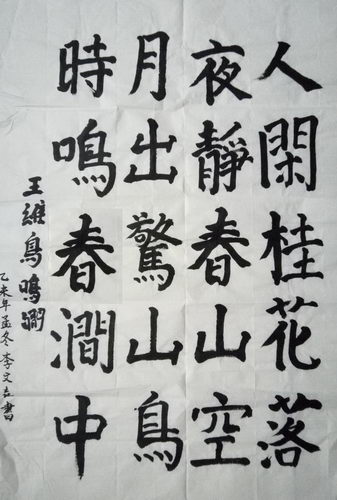 人閑桂花落
夜靜春山空
月出驚山鳥
時鳴春澗中
王維鳥鳴澗
乙未年孟冬李文玄書